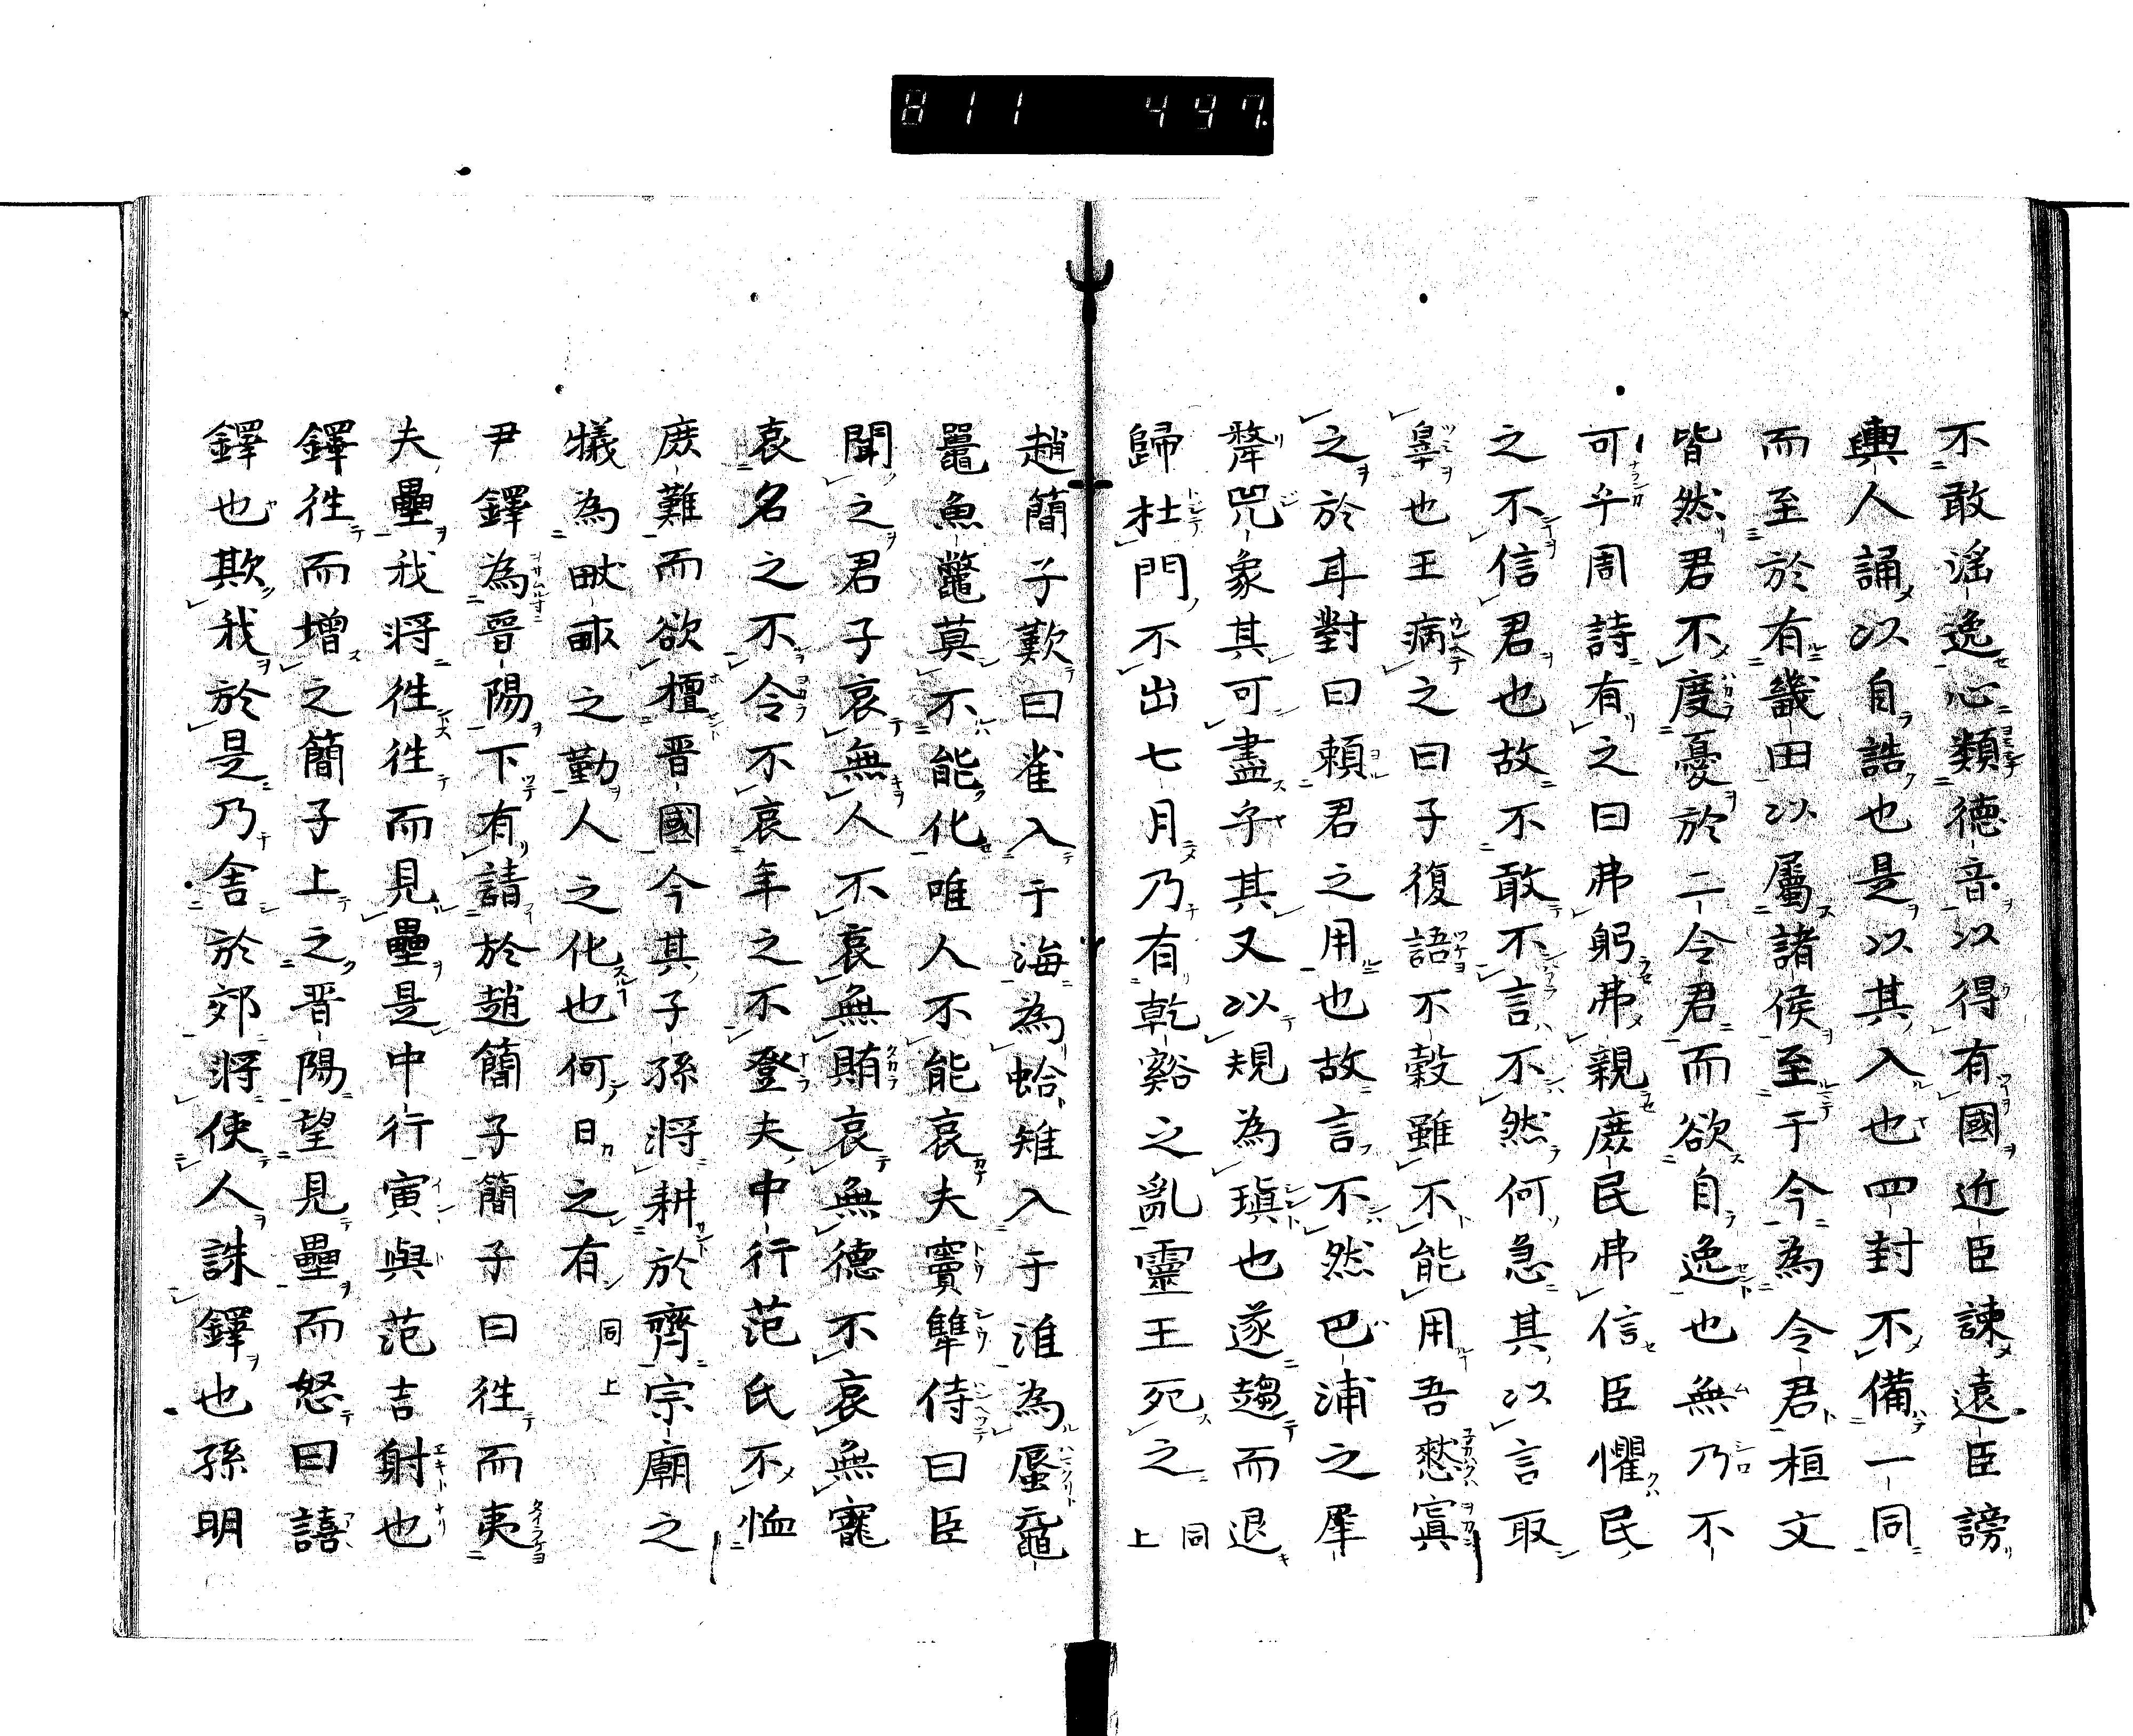 811 447.
不敢淫逸心類德音以得有國近臣諫遠臣謗
輿人誦以自誥也是以其入也四封不備一同
而至於有畿田以屬諸侯至于今為令君桓文
皆然君不度憂於二令君而欲自逸也無乃不
可乎周詩有之曰弗躬弗親庶民弗信臣懼民
之不信君也故不敢不言不然何急其以言取
辠也王病之曰子復語不穀雖不能用吾憖寘
之於耳對曰頼君之用也故言不然巴浦之犀
犛兕象其可盡乎其又以規為瑱也遂趨而退
歸杜門不出七月乃有乾谿之亂靈王死之 同上
趙簡子歎曰雀入于海為蛤雉入于淮為蜃黿
鼉魚鼈莫不能化唯人不能哀夫竇犨侍曰臣
聞之君子哀無人不哀無賄哀無德不哀無寵
哀名之不令不哀年之不登夫中行范氏不恤
庶難而欲檀晋國今其子孫將耕於齊宗廟之
犧為畎畞之勤人之化也何日之有 同上
尹鐸為晋陽下有請於趙簡子簡子曰徃而夷
夫壘我將徃徃而見壘是中行寅與范吉射也
鐸徃而增之簡子上之晋陽望見壘而怒曰譆
鐸也欺我於是乃舍於郊將使人誅鐸也孫明